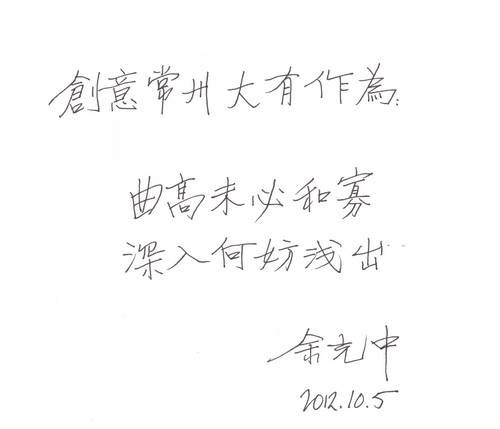 創意常州大有作為:
曲高未必和寡
深入何妨浅出
余光中
2012.10.5